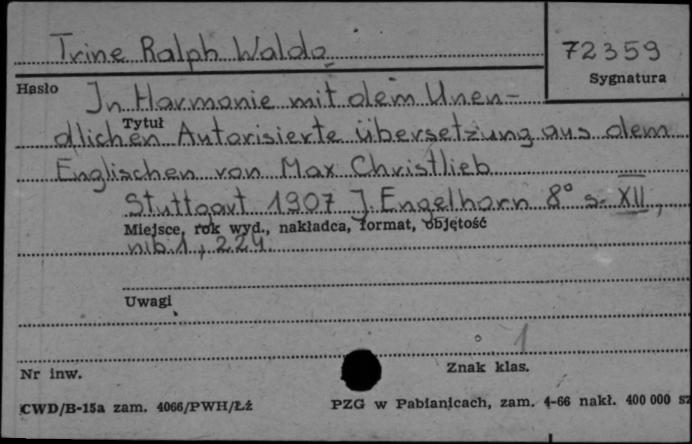 Trine Ralph Waldo
72359
Sygnatura
Hasło
In Harmonie mit dem Unen-
Tytuł
dlichen Autorisierte übersetzung aus dem
Englischen von Max Christlieb
Stuttgart 1907 J. Engelhorn 8° s. XII,
Miejsce, rok wyd., nakładca, format, objętość
nlb. 1, 224.
Uwagi
1
Nr inw.
Znak klas.
CWD/B-15a zam. 4066/PWH/Łź
PZG w Pabianicach, zam. 4-66 nakł. 400 000 sz